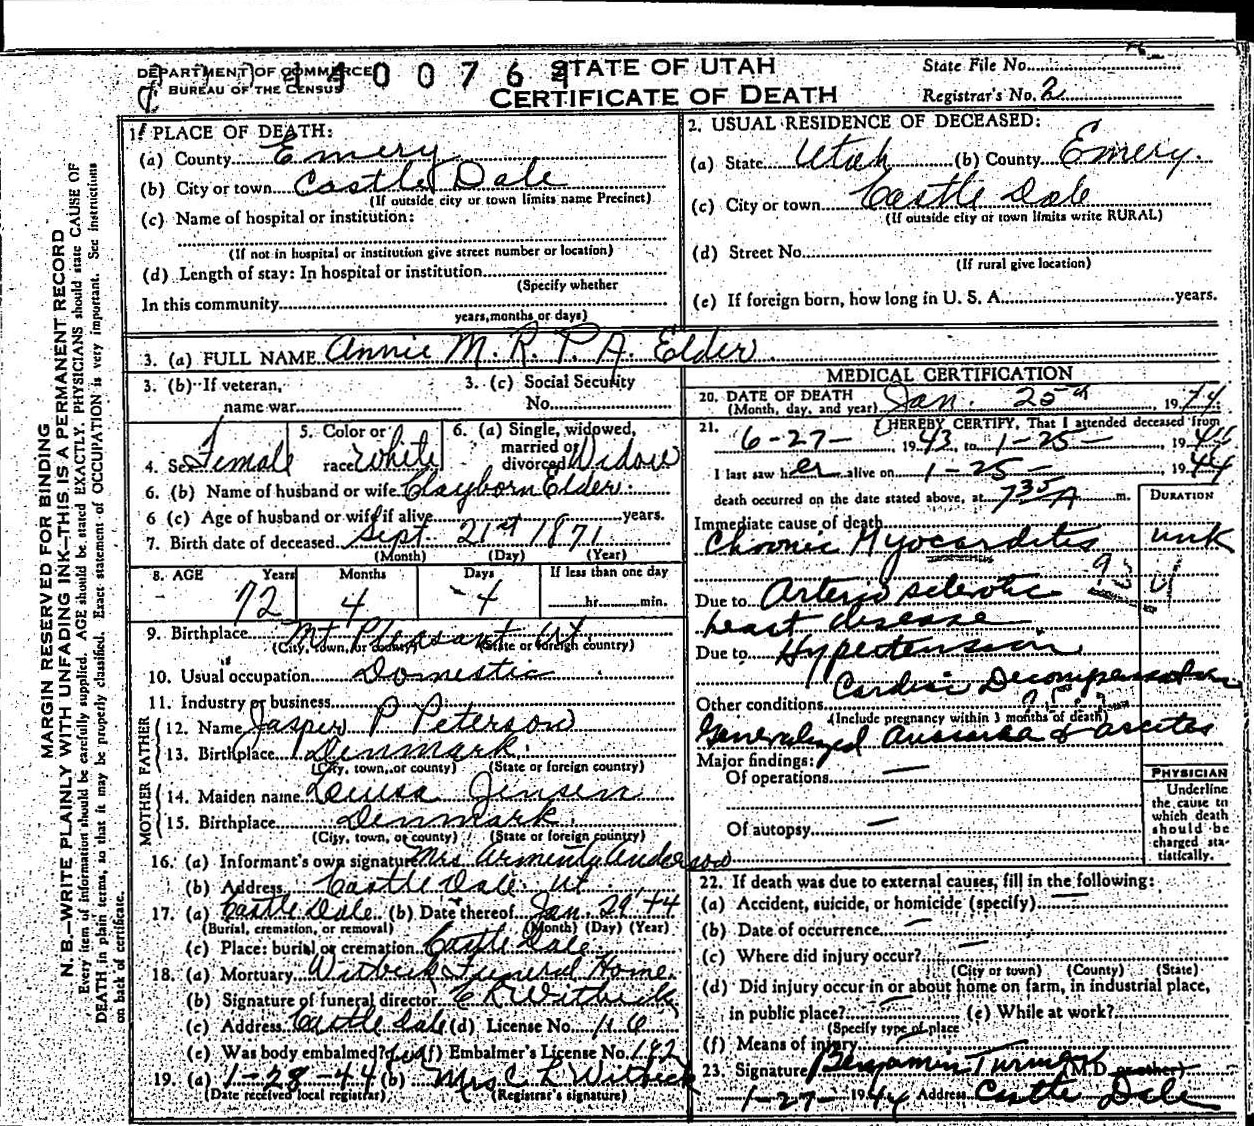 DEPARTMENT OF COMMERCE
BUREAU OF THE CENSUS
400769
STATE OF UTAH
CERTIFICATE OF DEATH
State File No.
Registrar's No. 2
MARGIN RESERVED FOR BINDING
N. B.—WRITE PLAINLY WITH UNFADING INK—THIS IS A PERMANENT RECORD
Every item of information should be carefully supplied. AGE should be stated EXACTLY. PHYSICIANS should state CAUSE OF
DEATH in plain terms, so that it may be properly classified. Exact statement of OCCUPATION is very important. See instructions
on back of certificate.
1. PLACE OF DEATH:
(a) County Emery
(b) City or town Castle Dale
(If outside city or town limits name Precinct)
(c) Name of hospital or institution:
(If not in hospital or institution give street number or location)
(d) Length of stay: In hospital or institution
(Specify whether
In this community
years, months or days)
2. USUAL RESIDENCE OF DECEASED:
(a) State Utah (b) County Emery.
(c) City or town Castle Dale
(If outside city or town limits write RURAL)
(d) Street No.
(If rural give location)
(e) If foreign born, how long in U. S. A. years.
3. (a) FULL NAME Annie M. R. P. A. Elder.
3. (b) If veteran,
name war
3. (c) Social Security
No.
4. Sex Female
5. Color or
race White
6. (a) Single, widowed,
married or
divorced Widow
6. (b) Name of husband or wife Clayborn Elder.
6 (c) Age of husband or wife if alive years.
7. Birth date of deceased Sept. 21st 1871
(Month) (Day) (Year)
8. AGE Years Months Days If less than one day
72 4 4 hr. min.
9. Birthplace Mt Pleasant Ut.
(City, town, or county) (State or foreign country)
10. Usual occupation Domestic
11. Industry or business
FATHER
12. Name Jasper P Peterson
13. Birthplace Denmark.
(City, town, or county) (State or foreign country)
MOTHER
14. Maiden name Louisa Jensen
15. Birthplace Denmark.
(City, town, or county) (State or foreign country)
16. (a) Informant's own signature Mrs Arminty Anderson
(b) Address Castle Dale Ut
17. (a) Castle Dale (b) Date thereof Jan 29 44
(Burial, cremation, or removal) (Month) (Day) (Year)
(c) Place: burial or cremation Castle Dale
18. (a) Mortuary Witbeck Funeral Home.
(b) Signature of funeral director C L Witbeck
(c) Address Castle Dale (d) License No.
(e) Was body embalmed? yes (f) Embalmer's License No. 182
19. (a) 1-28-44 (b) Mrs C L Witbeck
(Date received local registrar) (Registrar's signature)
MEDICAL CERTIFICATION
20. DATE OF DEATH
(Month, day, and year) Jan. 25th, 1944
21. I HEREBY CERTIFY, That I attended deceased from
6-27-, 1943, to 1-25-, 1944
I last saw her alive on 1-25-, 1944
death occurred on the date stated above, at 7 35 A m.
DURATION
Immediate cause of death
Chronic Myocarditis unk
93
Due to Arterio sclerotic
heart disease
Due to Hypertension
Cardiac Decompensation
Other conditions
(Include pregnancy within 3 months of death)
Generalized Anasarka & ascites
Major findings:
Of operations —
Of autopsy —
PHYSICIAN
Underline
the cause to
which death
should be
charged sta-
tistically.
22. If death was due to external causes, fill in the following:
(a) Accident, suicide, or homicide (specify) —
(b) Date of occurrence —
(c) Where did injury occur? —
(City or town) (County) (State)
(d) Did injury occur in or about home on farm, in industrial place,
in public place? — (e) While at work?
(Specify type of place
(f) Means of injury
23. Signature Benjamin Turman (M.D. or other)
1-27- 1944 Address Castle Dale